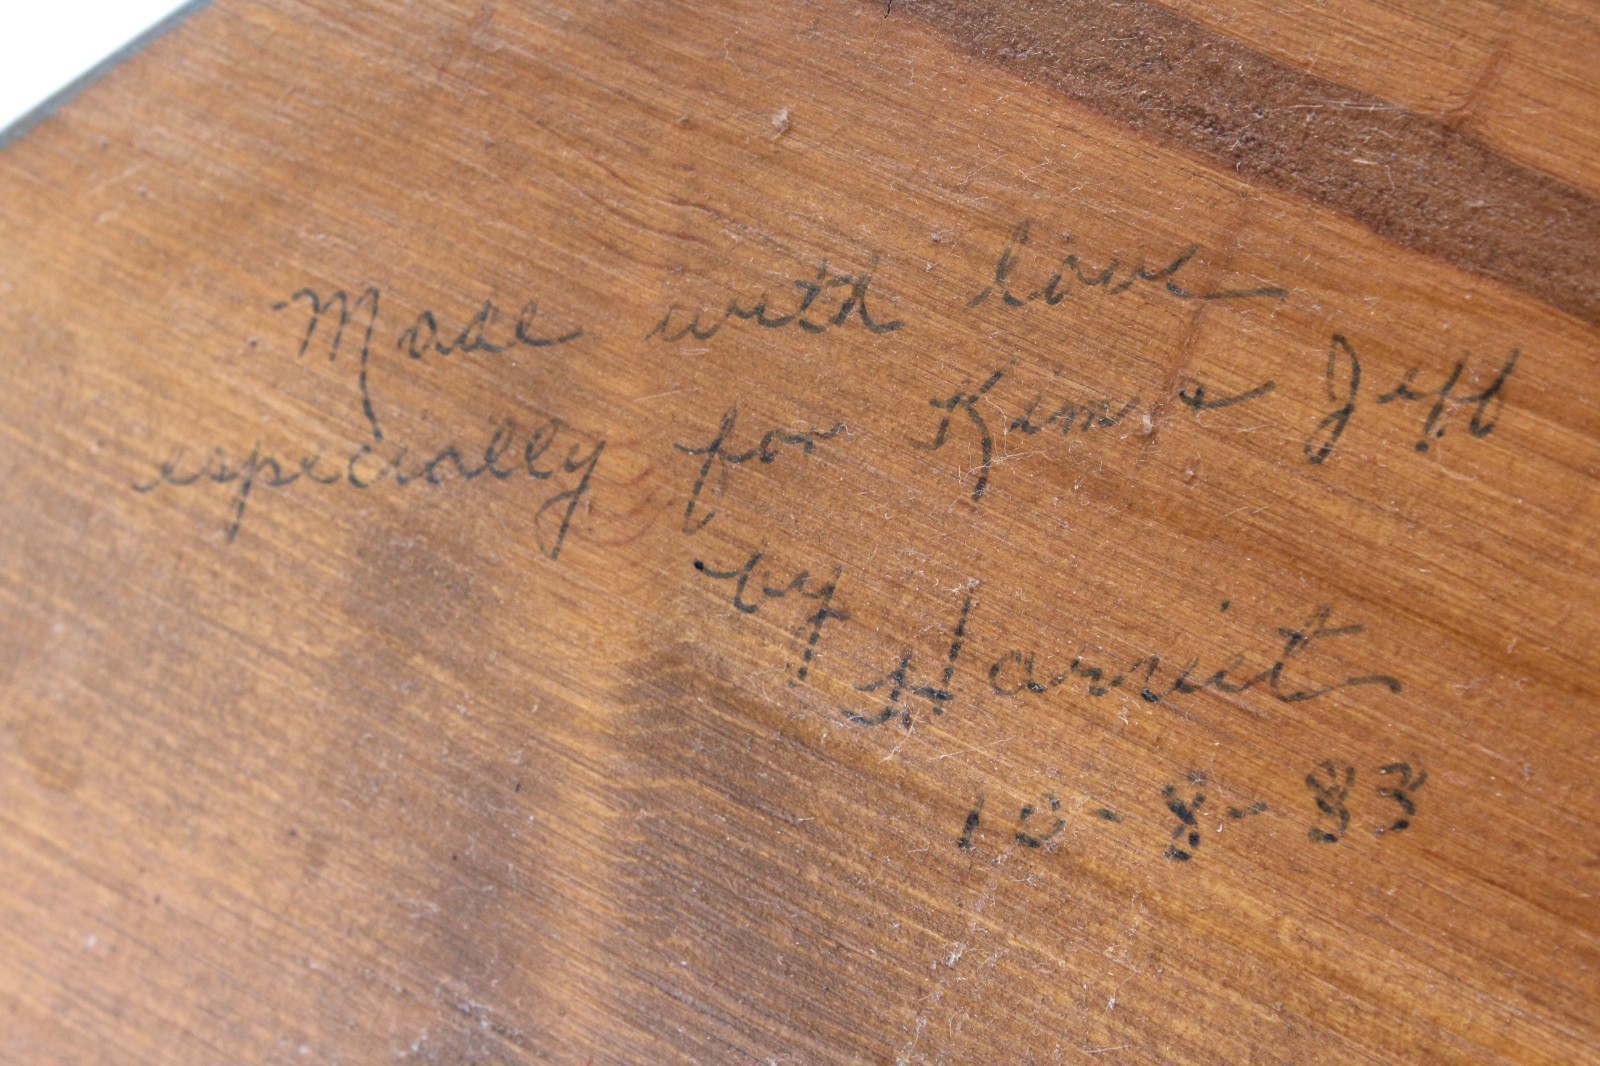 Made with love
especially for Kim & Jeff
by Harriet
10-8-83